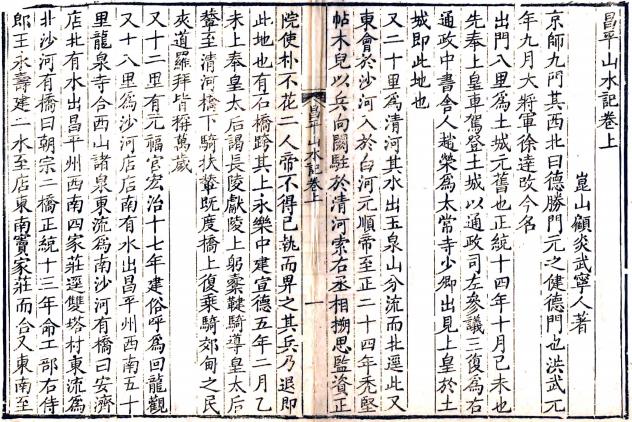 昌平山水記卷上
崑山顧炎武寧人著
京師九門其西北曰德勝門元之健德門也洪武元
年九月大將軍徐達改今名
出門八里爲土城元舊也正統十四年十月己未也
先奉上皇車駕登土城以通政司左參議王復爲右
通政中書舍人趙榮爲太常寺少卿出見上皇於土
城卽此地也
又二十里爲清河其水出玉泉山分流而北逕此又
東會於沙河入於白河元順帝至正二十四年禿堅
帖木兒以兵向闕駐於清河索右丞相搠思監資正
昌平山水記卷上
一
院使朴不花二人帝不得已執而畀之其兵乃退卽
此地也有石橋跨其上永樂中建宣德五年二月乙
未上奉皇太后謁長陵獻陵上躬櫜鞬騎導皇太后
輦至清河橋下騎扶輦旣度橋上復乘騎郊甸之民
夾道羅拜皆稱萬歲
又十二里有元福宮宏治十七年建俗呼爲回龍觀
又十八里爲沙河店店南有水出昌平州西南五十
里龍泉寺合西山諸泉東流爲南沙河有橋曰安濟
店北有水出昌平州西南四家莊逕雙塔村東流爲
北沙河有橋曰朝宗二橋正統十三年命工部右侍
郎王永壽建二水至店東南竇家莊而合又東南至